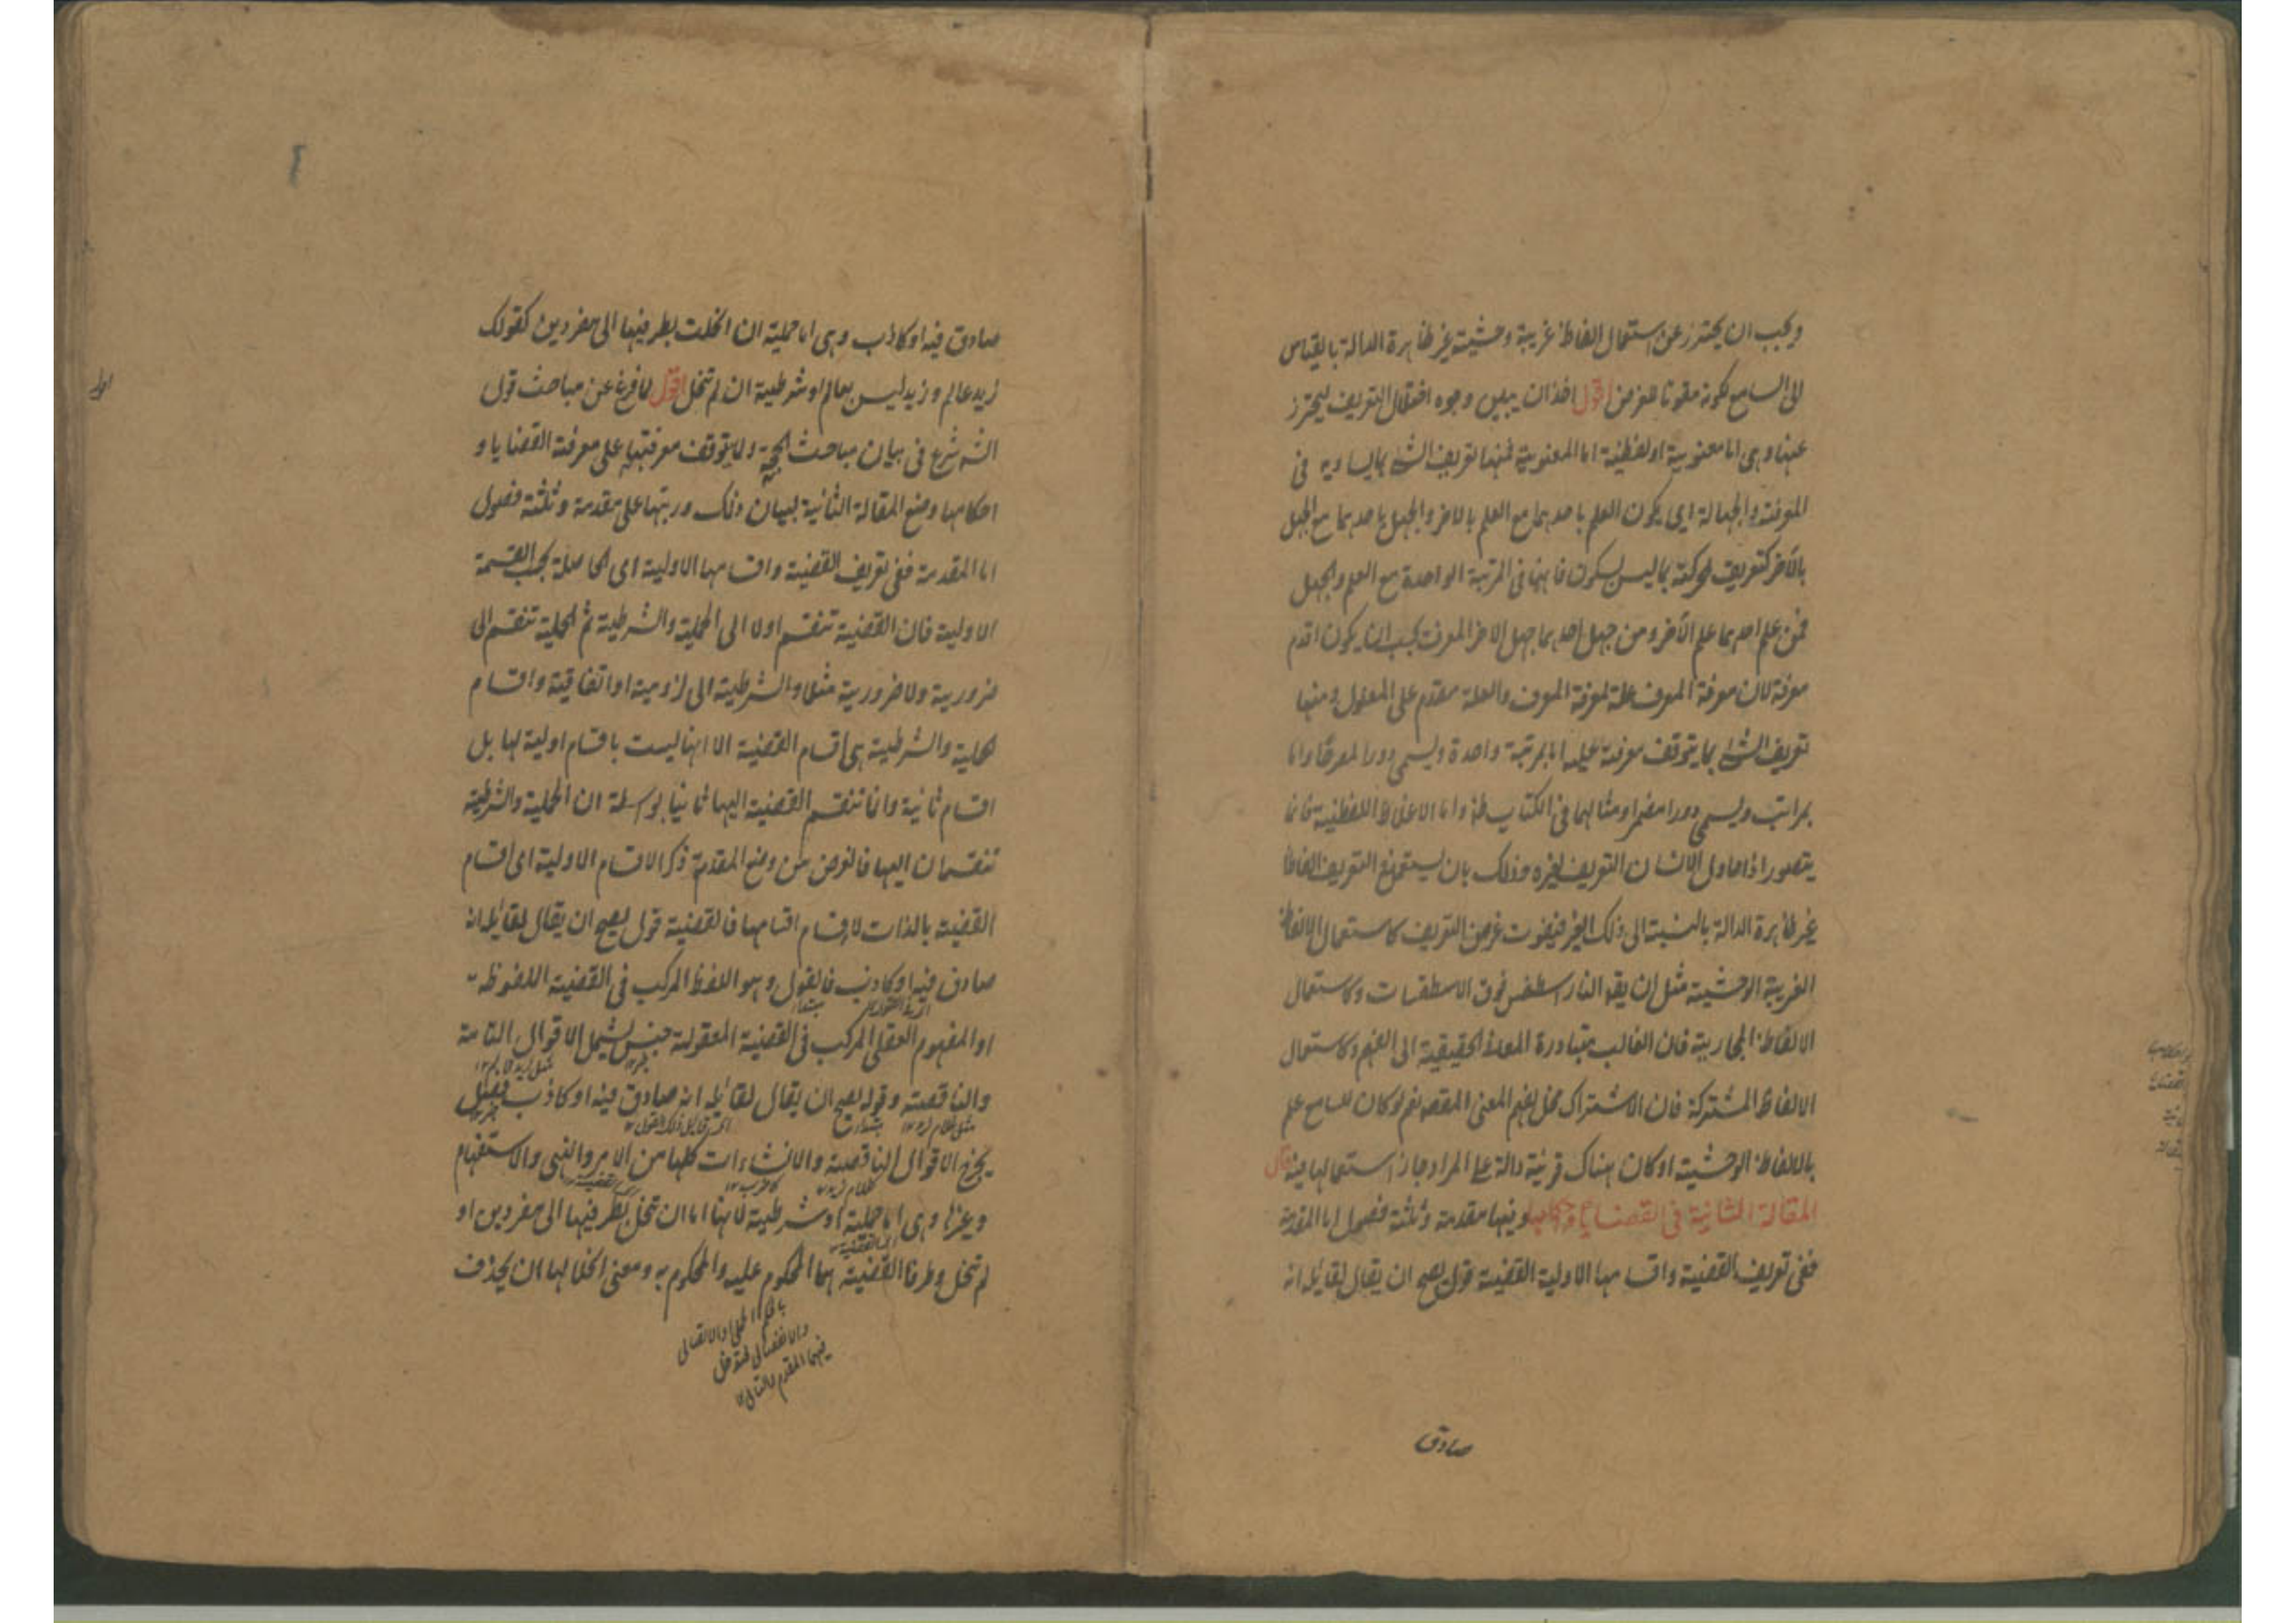 ويجب ان يحترز عن استعمال الفاظ غريبة وحشية غير ظاهرة الدالة بالقياس
الى السامع لكونه مفوتا للغرض اقول اخذ ان يبين وجوه اختلال التعريف ليحترز
عنها وهى اما معنوية او لفظية اما المعنوية فمنها تعريف الشئ بما يساويه فى
المعرفة والجهالة اى يكون العلم باحدهما مع العلم بالاخر والجهل باحدهما مع الجهل
بالآخر كتعريف الحركة بما ليس بسكون فانهما فى المرتبة الواحدة مع العلم والجهل
فمن علم احدهما علم الآخر ومن جهل احدهما جهل الاخر المعرف يجب ان يكون اقدم
معرفة لان معرفة المعرف علة لمعرفة المعرف والعلة مقدم على المعلول ومنها
تعريف الشئ بما يتوقف معرفته عليه اما بمرتبة واحدة ويسمى دورا مصرحا واما
بمراتب ويسمى دورا مضمرا ومثالهما فى الكتاب ظ واما الاغلاط اللفظية فانما
يتصور اذا حاول الانسان التعريف لغيره وذلك بان يستعمل فى التعريف الفاظا
غير ظاهرة الدالة بالنسبة الى ذلك الغير فيفوت غرض التعريف كاستعمال الالفاظ
الغريبة الوحشية مثل ان يقه النار اسطقس فوق الاسطقسات وكاستعمال
الالفاظ المجازية فان الغالب مبادرة المعانى الحقيقية الى الفهم وكاستعمال
الالفاظ المشتركة فان الاشتراك مخل لفهم المعنى المقصود نعم لو كان للسامع علم
بالالفاظ الوحشية او كان هناك قرينة دالة على المراد جاز استعمالها فيه قال
المقالة الثانية فى القضايا واحكامها وفيها مقدمة وثلثة فصول اما المقدمة
ففى تعريف القضية واقسامها الاولية القضية قول يصح ان يقال لقائله انه
صادق
صادق فيه او كاذب وهى اما حملية ان انحلت بطرفيها الى مفردين كقولك
زيد عالم وزيد ليس بعالم او شرطية ان لم تنحل اقول لما فرغ عن مباحث قول
الشه شرع فى بيان مباحث الحجة ولما يتوقف معرفتها على معرفة القضايا و
احكامها وضع المقالة الثانية لبيان ذلك ورتبها على مقدمة وثلثة فصول
اما المقدمة ففى تعريف القضية واقسامها الاولية اى الحاصلة بحسب القسمة
الاولية فان القضية تنقسم اولا الى الحملية والشرطية ثم الحملية تنقسم الى
ضرورية ولاضرورية مثلا والشرطية الى لزومية او اتفاقية واقسام
الحملية والشرطية هى اقسام القضية الا انها ليست باقسام اولية لها بل
اقسام ثانية وانما تنقسم القضية اليها ثانيا بواسطة ان الحملية والشرطية
تنقسمان اليها فالغرض من وضع المقدمة ذكر الاقسام الاولية اى اقسام
القضية بالذات لا اقسام اقسامها فالقضية قول يصح ان يقال لقائله انه
صادق فيه او كاذب فالقول وهو اللفظ المركب فى القضية الملفوظة
مبتدا
او المفهوم العقلى المركب فى القضية المعقولة جنس يشمل الاقوال التامة
مثل زيد قائم ١٢
والناقصة وقوله يصح ان يقال لقائله انه صادق فيه او كاذب فصل
يخرج الاقوال الناقصة والانشاءات كلها من الامر والنهى والاستفهام
وغيرها وهى اما حملية او شرطية لانها اما ان تنحل بطرفيها الى مفردين او
لم تنحل وطرفا القضية هما المحكوم عليه والمحكوم به ومعنى انحلالها ان يحذف
فيهما المقدم والتالى ١٢